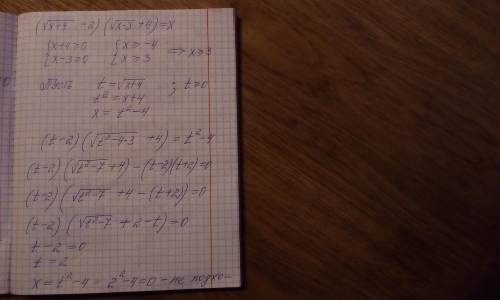 (√x+4 -2)(√x-3 +4)=x
{x+4≥0 {x≥-4
{x-3≥0 {x≥3 => x≥3
t=√x+4 ; t≥0
t²=x+4
x= t²-4
(t-2)(√t²-4-3 +4) = t²-4
(t-2)(√t²-7 +4) -(t-2)(t+2)=0
(t-2)(√t²-7 +4 -(t+2))=0
(t-2)(√t²-7 +2-t)=0
t-2=0
t=2
x=t²-4= 2²-4=0 - не подхо-